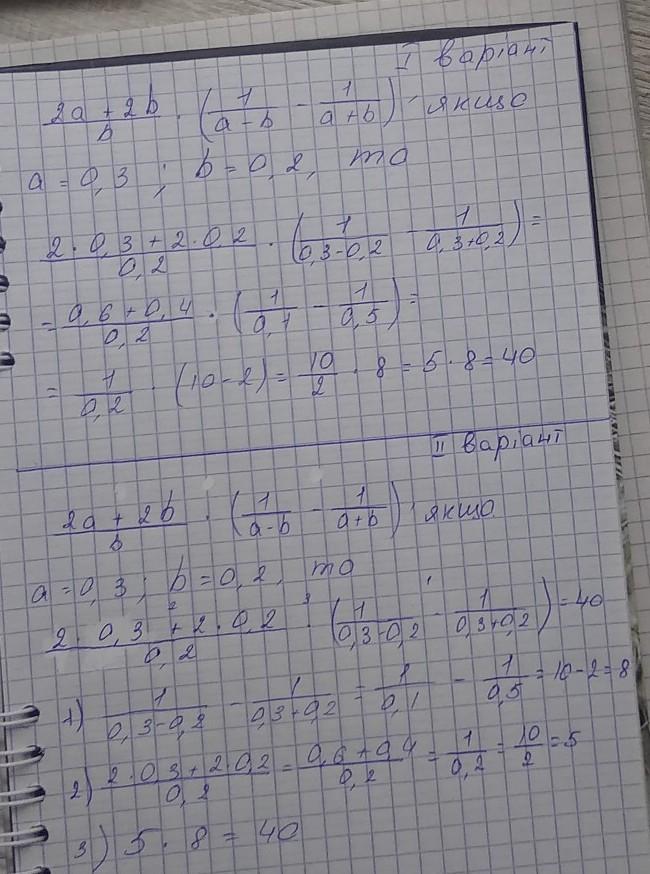 I варіант
(2a + 2b)/b · (1/(a-b) - 1/(a+b)), якщо
a = 0,3 ; b = 0,2, то
(2 · 0,3 + 2 · 0,2)/0,2 · (1/(0,3-0,2) - 1/(0,3+0,2)) =
= (0,6 + 0,4)/0,2 · (1/0,1 - 1/0,5) =
= 1/0,2 · (10-2) = 10/2 · 8 = 5 · 8 = 40
II варіант
(2a + 2b)/b · (1/(a-b) - 1/(a+b)), якщо
a = 0,3 ; b = 0,2, то
2 3 1
(2 · 0,3 + 2 · 0,2)/0,2 · (1/(0,3-0,2) - 1/(0,3+0,2)) = 40
1) 1/(0,3-0,2) - 1/(0,3+0,2) = 1/0,1 - 1/0,5 = 10-2 = 8
2) (2 · 0,3 + 2 · 0,2)/0,2 = (0,6 + 0,4)/0,2 = 1/0,2 = 10/2 = 5
3) 5 · 8 = 40